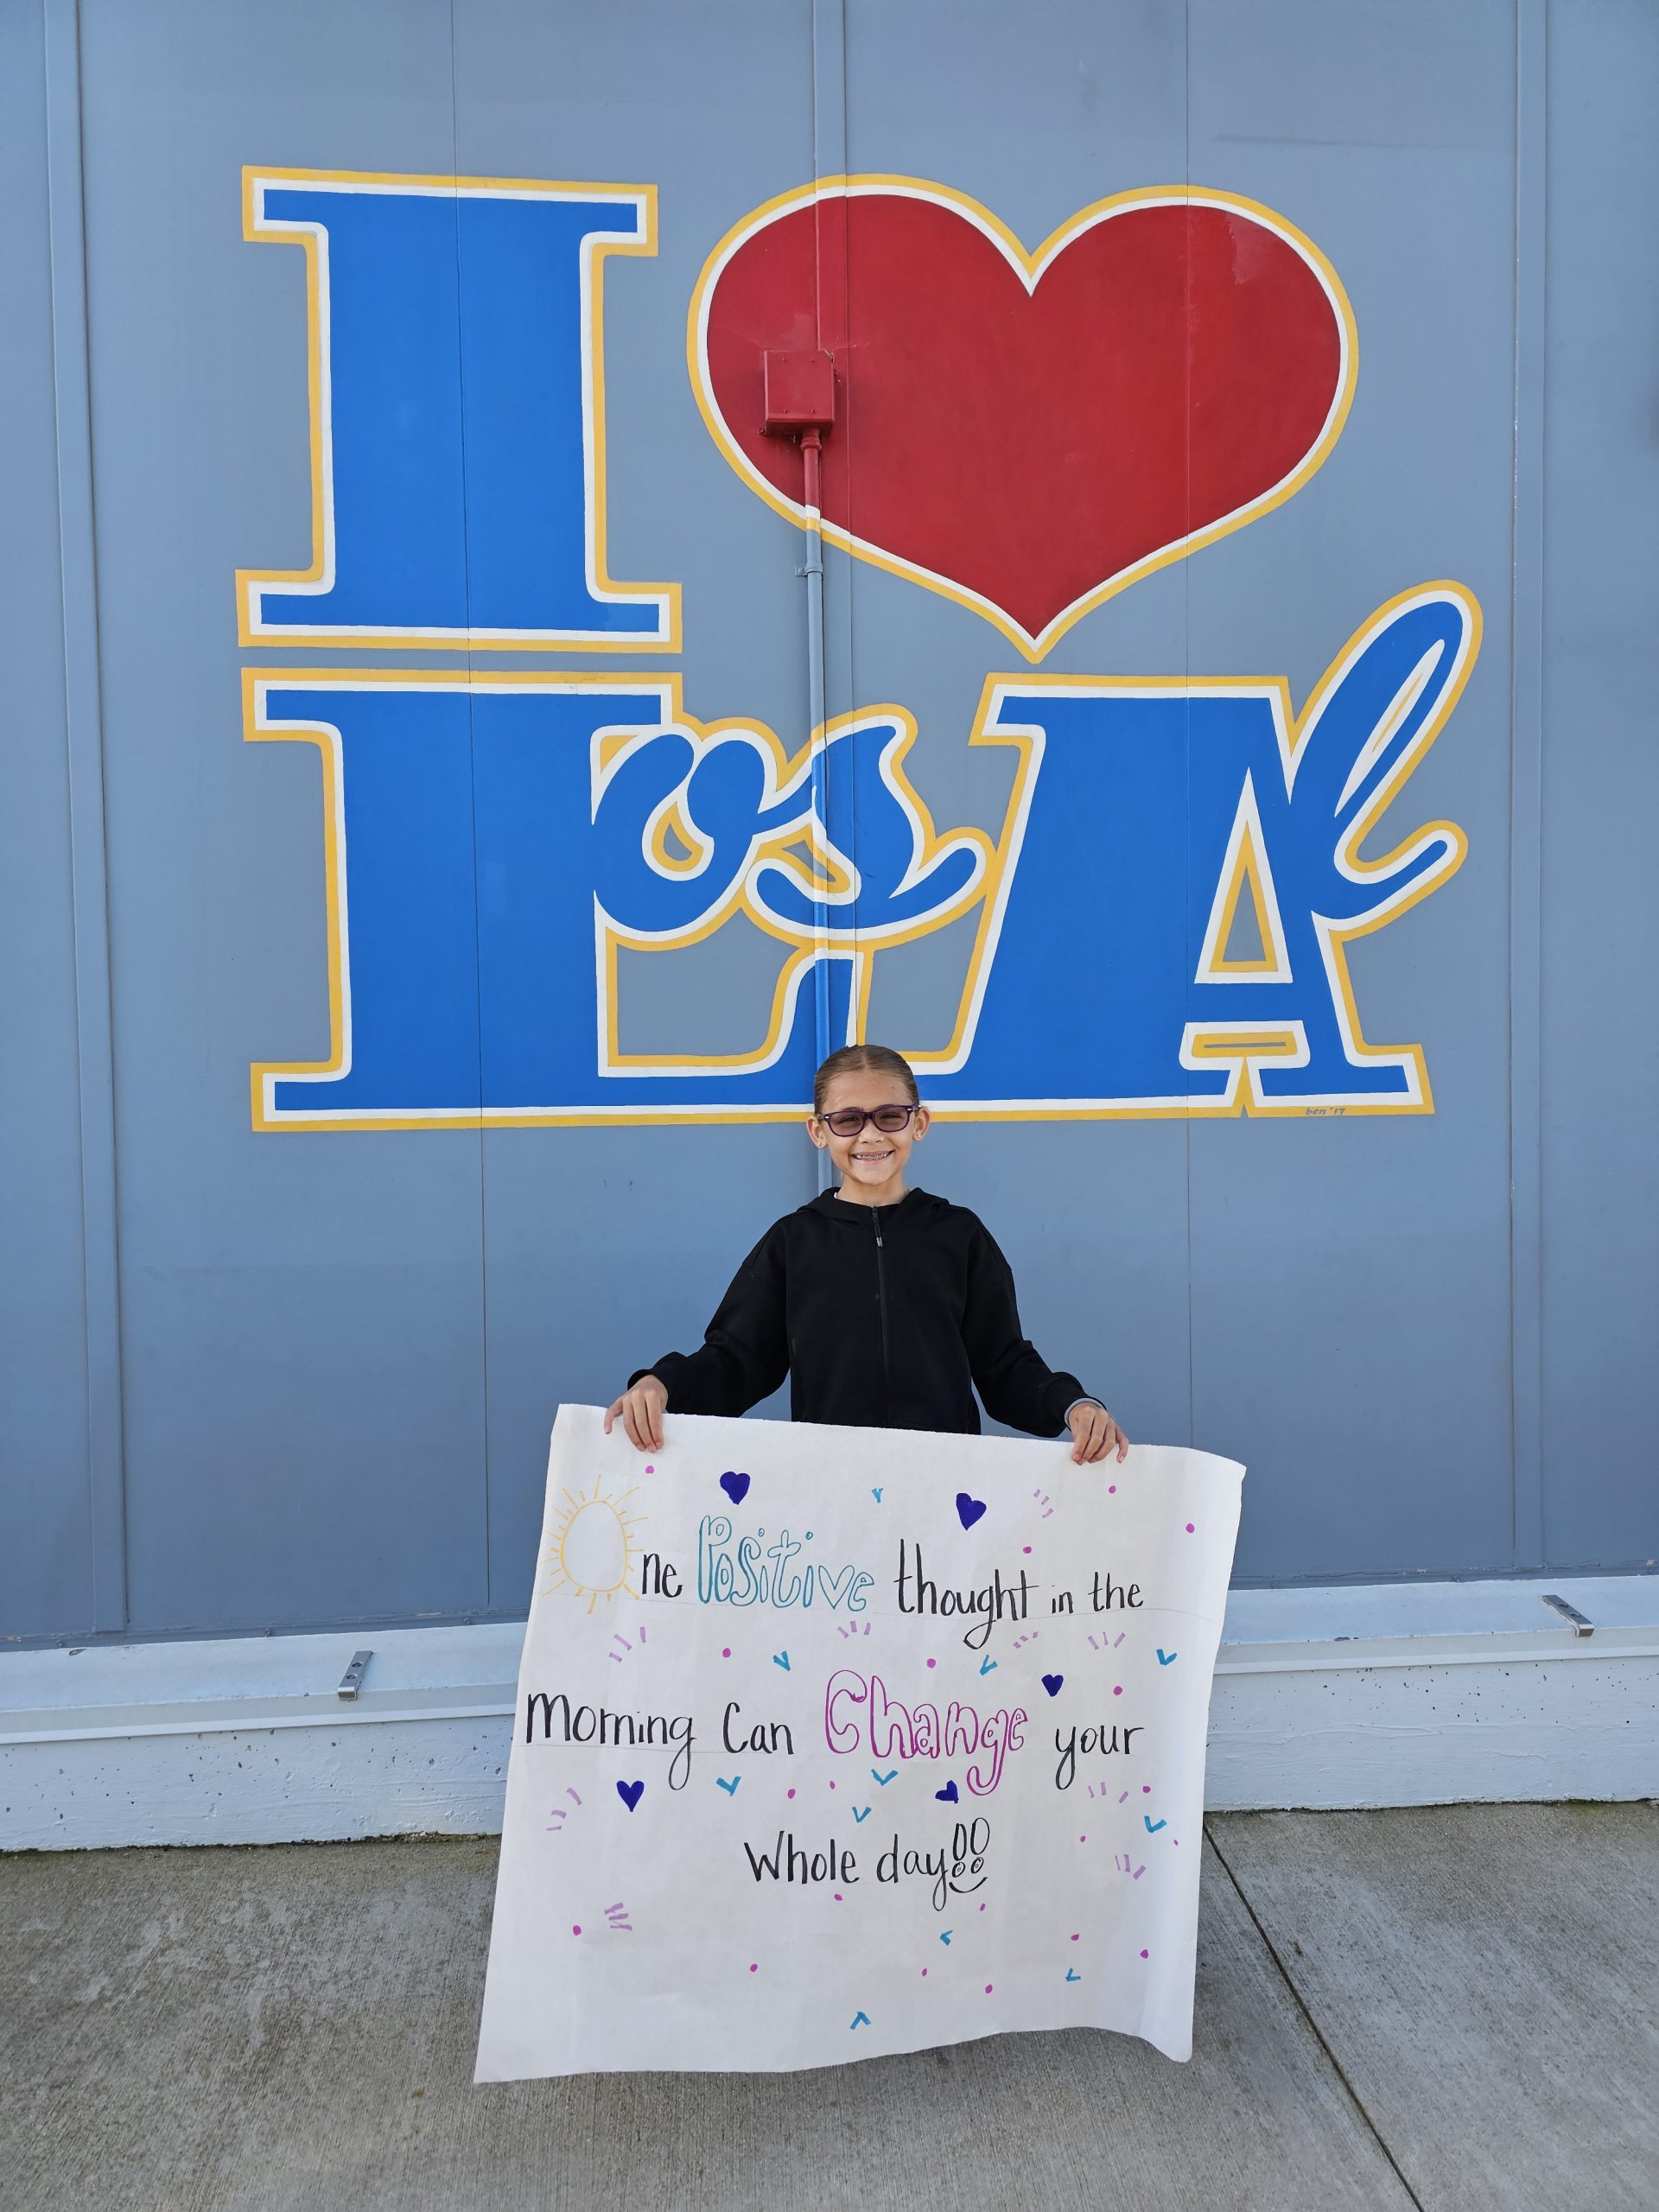 I ❤
Los Al
ben '17
One Positive thought in the
Morning Can Change your
Whole day!!